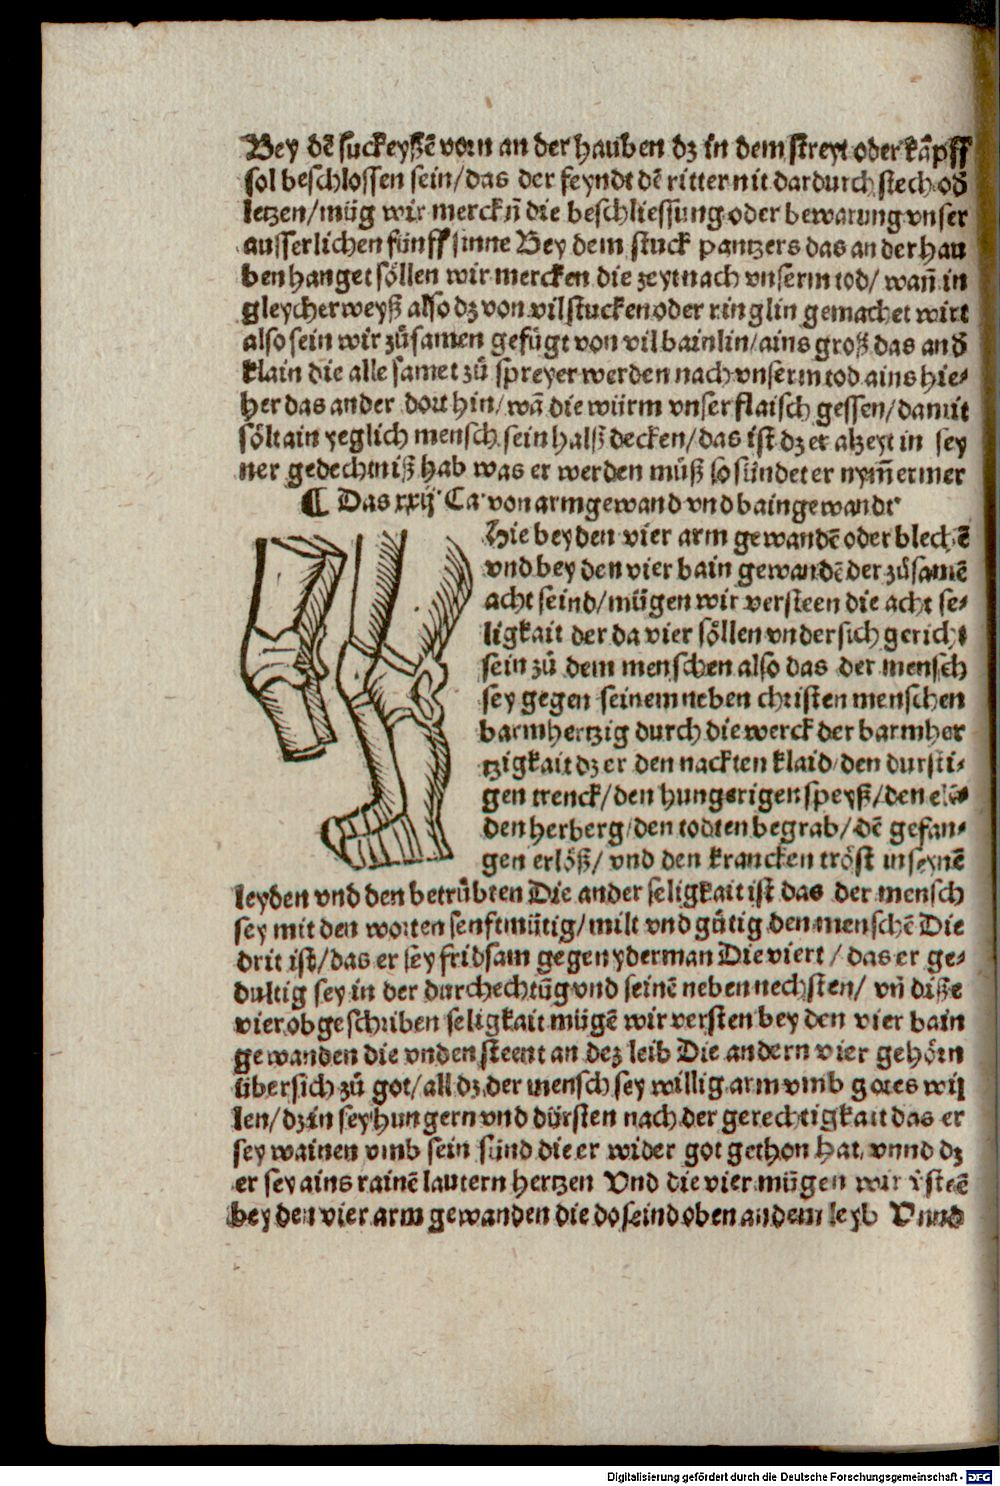 Bey dē suckeyßē vorn an der hauben dz in dem streyt oder kāpff
sol beschlossen sein/das der feyndt dē ritter nit dardurch stech od̄
letzen/můg wir merckn̄ die beschliessung oder bewarung vnser
ausserlichen fünff sinne Bey dem stuck pantzers das an der hau
ben hanget söllen wir mercken die zeyt nach vnserm tod/ wan̄ in
gleycher weyß also dz von vil stucken oder ringlin gemachet wirt
also sein wir zůsamen gefügt von vil bainlin/ains groß das and̄
klain die alle samet zů spreyer werden nach vnserm tod ains hie-
her das ander dort hin/wā die würm vnser flaisch gessen/damit
sölt ain yeglich mensch sein halß decken/das ist dz er alzeyt in sey
ner gedechtniß hab was er werden můß so sündet er nym̄ermer
¶ Das xxij Ca. von armgewand vnd baingewandt
Hie bey den vier arm gewandē oder blechē
vnd bey den vier bain gewandē der zůsamē
acht seind/mügen wir versteen die acht se-
ligkait der da vier söllen vndersich gericht
sein zů dem menschen also das der mensch
sey gegen seinem neben christen menschen
barmhertzig durch die werck der barmher
tzigkait dz er den nackten klaid/den dursti-
gen trenck/den hungerigen speyß/den elē-
den herberg/den todten begrab/dē gefan-
gen erlöß/ vnd den krancken tröst in seynē
leyden vnd den betrůbten Die ander seligkait ist das der mensch
sey mit den worten senftmütig/milt vnd gůtig den menschē Die
drit ist/das er sey fridsam gegen yderman Die viert / das er ge-
dultig sey in der durchechtūg vnd seinē neben nechsten/ vn̄ diße
vier obgeschriben seligkait mügē wir versten bey den vier bain
gewanden die vnden steent an dez leib Die andern vier gehörn
übersich zů got/all dz der mensch sey willig arm vmb gotes wil
len/dz in sey hungern vnd dürsten nach der gerechtigkait das er
sey wainen vmb sein sünd die er wider got gethon hat/vnnd dz
er sey ains rainē lautern hertzen Vnd die vier mügen wir v̄steē
bey den vier arm gewanden die do seind oben an dem leyb Vnnd
Digitalisierung gefördert durch die Deutsche Forschungsgemeinschaft - DFG